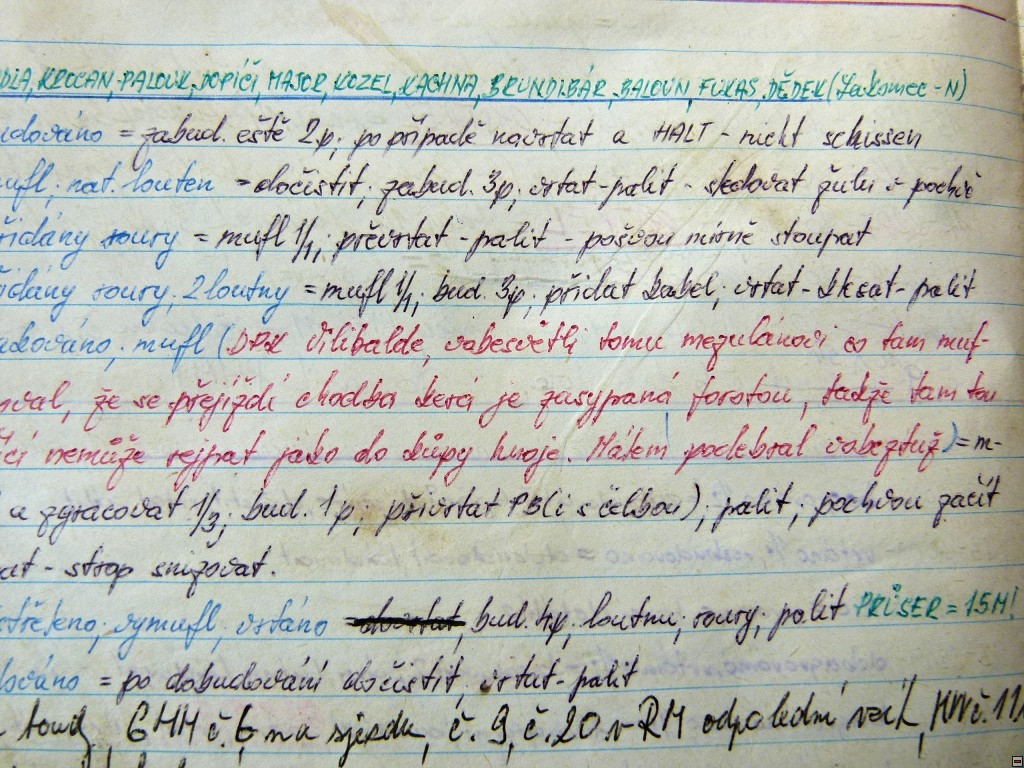 KROCAN, PALOUK, DOPIČI, MAJOR, KOZEL, KACHNA, BRUNDIBÁR, BALOUN, FUKAS, DĚDEK (Lakomec - N)
= zabud. eště 2p; po případě navrtat a HALT - nicht schissen
mufl; nat. louten = dočistit; zabud. 3p; vrtat - palit - sledovat žulu v počvě
řidány roury = mufl 1/1; převrtat - palit - počvou mírně stoupat
roury, 2 loutny = mufl 1/1; bud. 3p; přidat kabel; vrtat - palit
mufl (DPK Vilibalde, vobesvětli tomu megulánovi co tam muf-
oval, že se přejíždí chodba kerá je zasypaná forotou, takže tam tou
nemůže rejpat jako do kůpy hnoje. Mátem podebral vobezřuž) = m-
a zpracovat 1/3; bud. 1p; přivrtat PB (i s čelbou); palit; počvou začít
at - strop snižovat.
vymufl, vrtáno = bud. 4p, loutnu; roury; palit PRŮSER = 15M!
= po dobudování dočistit, vrtat - palit
č. 6 na sjezdu, č. 9, č. 20 v RM odpolední